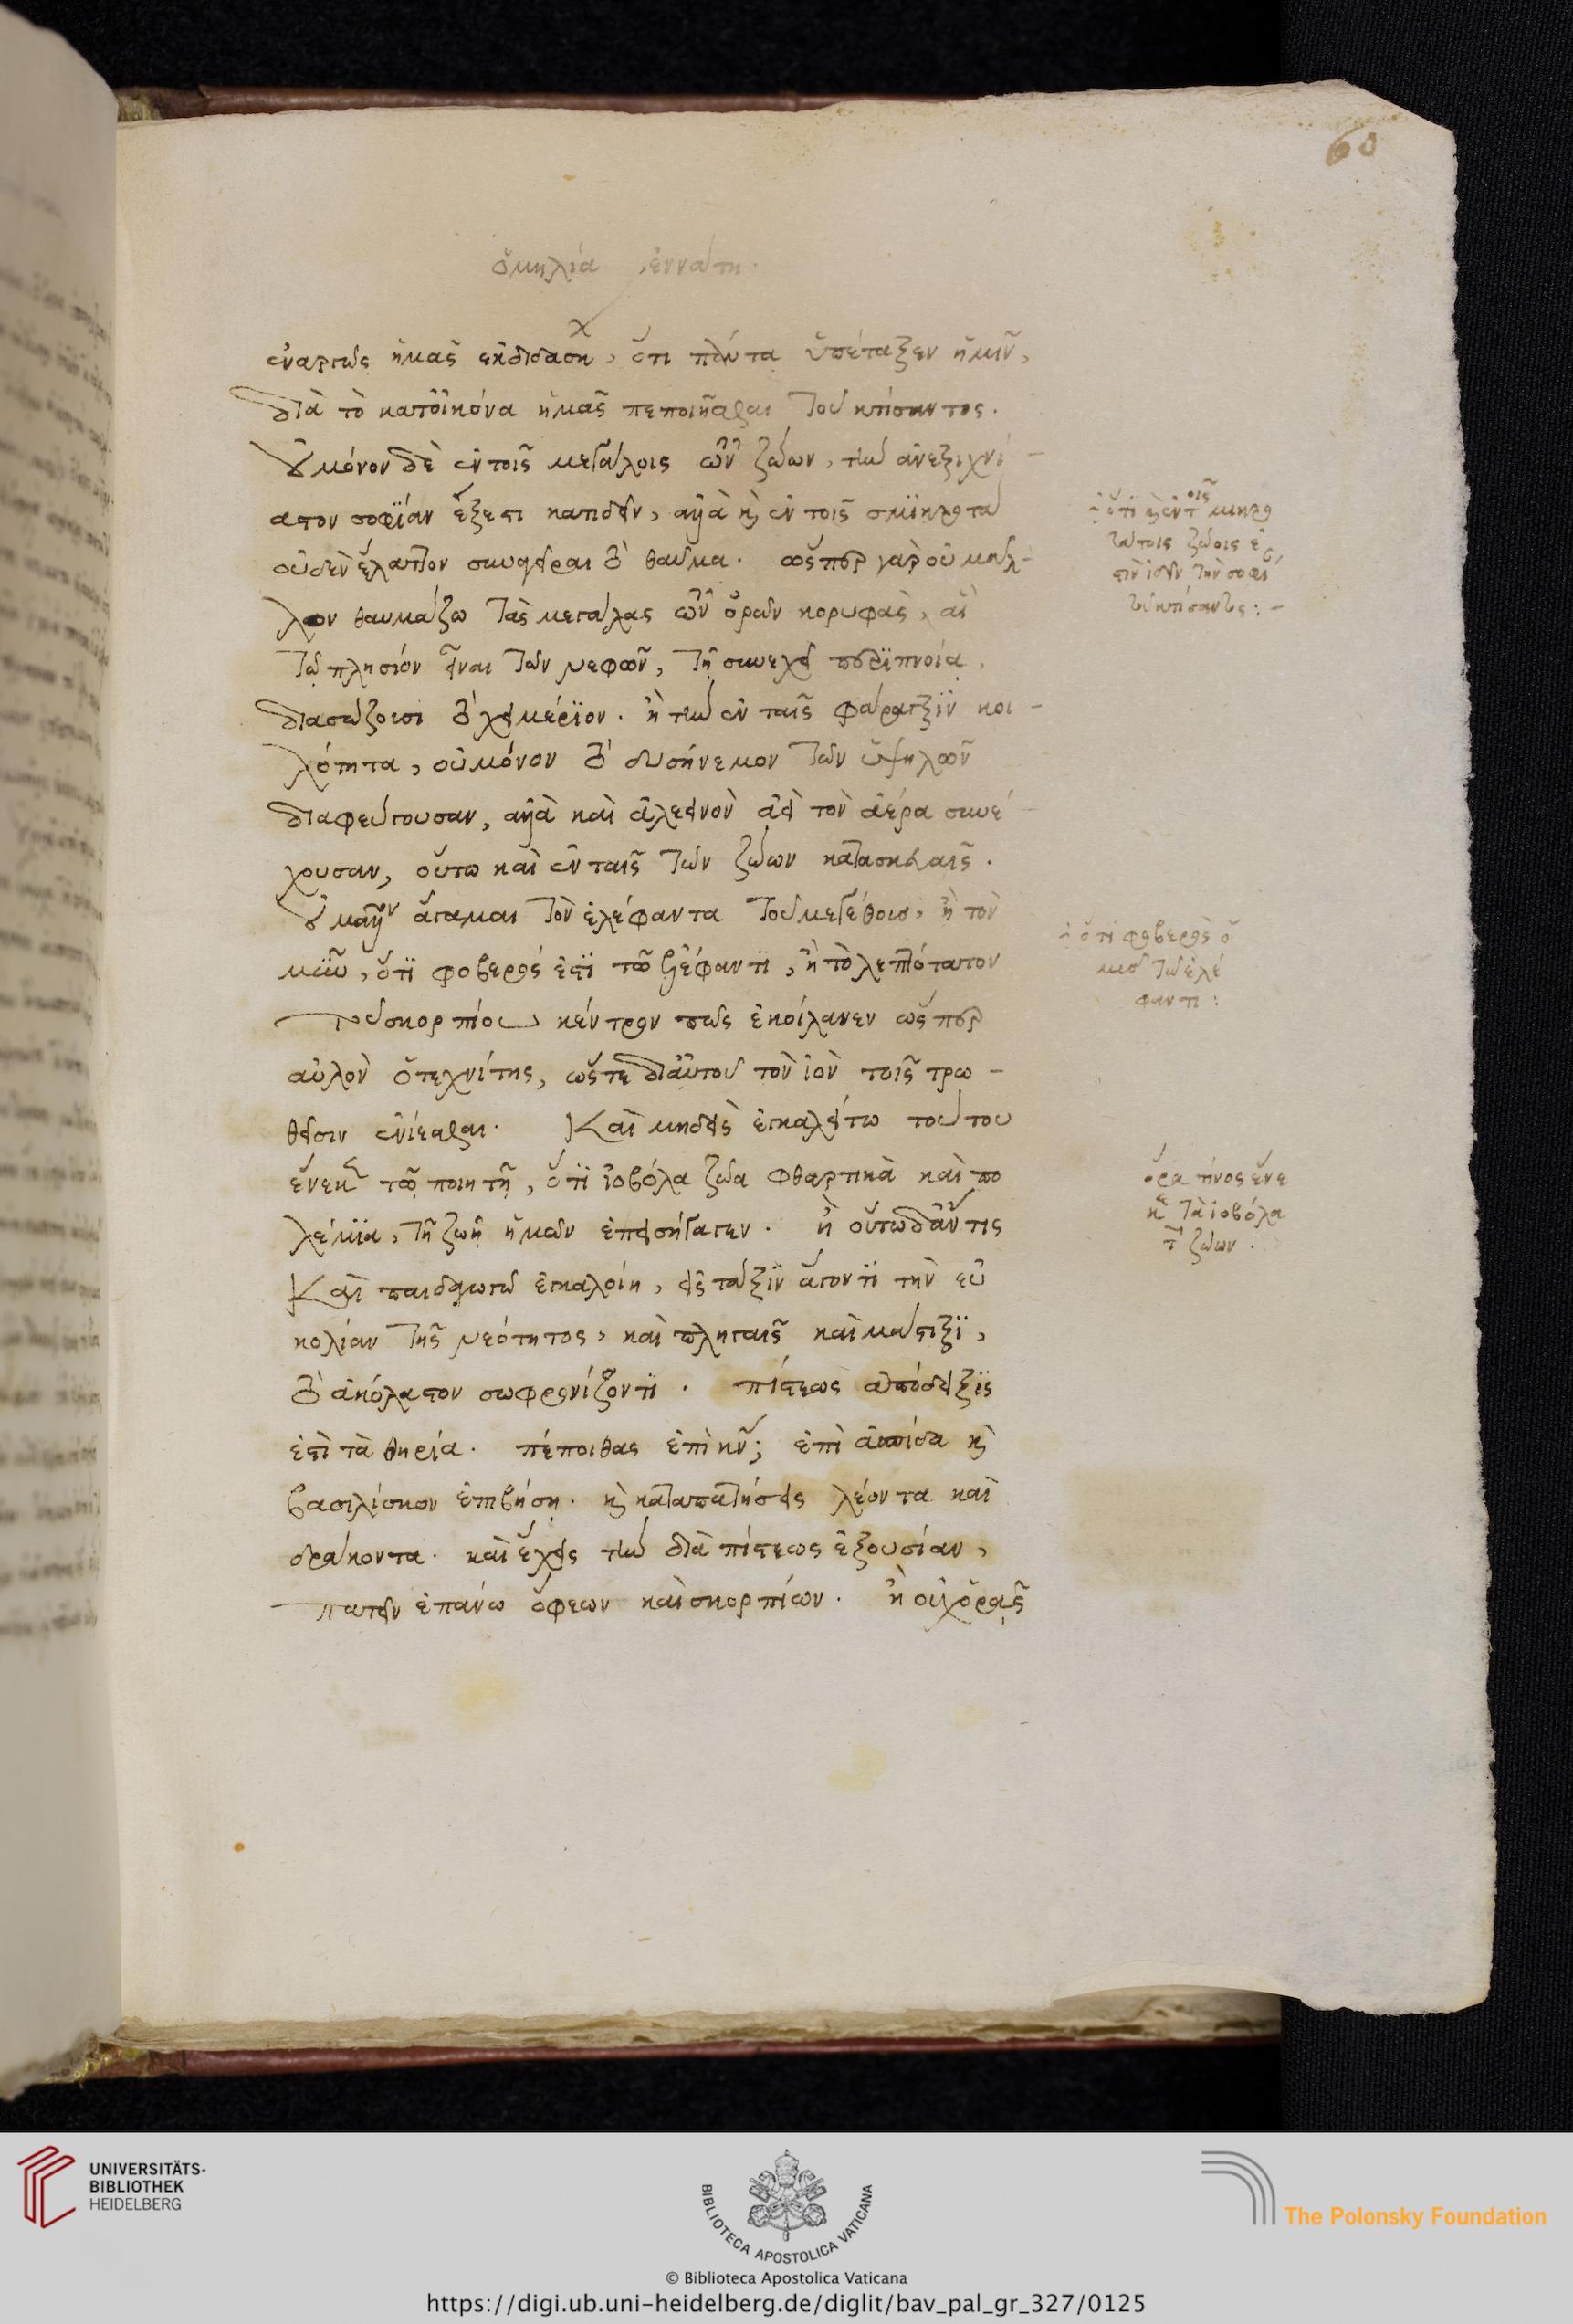 60
ὁμηλία ἐννάτη.
ἐναργῶς ἡμᾶς ἐκδιδάσκῃ, ὅτι πάντα ὑπέταξεν ἡμῖν,
διὰ τὸ κατ' εἰκόνα ἡμᾶς πεποιῆσθαι τοῦ κτίσαντος.
οὐ μόνον δὲ ἐν τοῖς μεγάλοις τῶν ζώων, τὴν ἀνεξιχνί-
αστον σοφίαν ἔξεστι κατιδεῖν, ἀλλὰ καὶ ἐν τοῖς σμικροτά
οὐδὲν ἔλαττον συναγεῖραι τὸ θαῦμα. ὥσπερ γὰρ οὐ μᾶλ-
λον θαυμάζω τὰς μεγάλας τῶν ὀρῶν κορυφὰς, αἳ
τῷ πλησίον εἶναι τῶν νεφῶν, τῇ συνεχεῖ περιπνοίᾳ,
διασώζουσι τὸ χειμέριον. ἢ τὴν ἐν ταῖς φάραγξιν κοι-
λότητα, οὐ μόνον τὸ δυσήνεμον τῶν ὑψηλῶν
διαφεύγουσαν, ἀλλὰ καὶ ἀλεεινὸν ἀεὶ τὸν ἀέρα συνέ-
χουσαν, οὕτω καὶ ἐν ταῖς τῶν ζώων κατασκευαῖς.
οὐ μᾶλλον ἄγαμαι τὸν ἐλέφαντα τοῦ μεγέθους, ἢ τὸν
μῦν, ὅτι φοβερός ἐστι τῷ ἐλέφαντι, ἢ τὸ λεπτότατον
τοῦ σκορπίου κέντρον πῶς ἐκοίλανεν ὥσπερ
αὐλὸν ὁ τεχνίτης, ὥστε δι' αὐτοῦ τὸν ἰὸν τοῖς τρω-
θεῖσιν ἐνίεσθαι. Καὶ μηδεὶς ἐγκαλείτω τούτου
ἕνεκεν τῷ ποιητῇ, ὅτι ἰοβόλα ζῶα φθαρτικὰ καὶ πο
λέμια, τῇ ζωῇ ἡμῶν ἐπεισήγαγεν. ἢ οὕτω δ' ἄν τις
Καὶ παιδαγωγῷ ἐγκαλοίη, εἰς τάξιν ἄγοντι τὴν εὐ
κολίαν τῆς νεότητος, καὶ πληγαῖς καὶ μάστιξι,
τὸ ἀκόλαστον σωφρονίζοντι. πίστεως ἀπόδειξις
ἐστὶ τὰ θηρία. πέποιθας ἐπὶ κν̅; ἐπὶ ἀσπίδα καὶ
βασιλίσκον ἐπιβήσῃ. καὶ καταπατήσεις λέοντα καὶ
δράκοντα. καὶ ἔχεις τὴν διὰ πίστεως ἐξουσίαν,
πατεῖν ἐπάνω ὄφεων καὶ σκορπίων. ἢ οὐχ ὁρᾷς
ὅτι καὶ ἐν τοῖς μικρο
τάτοις ζώοις ἔ
στιν ἰδεῖν τὴν σοφί
τοῦ κτίσαντος:-
ὅτι φοβερὸς ὁ
μῦς τῷ ἐλέ
φαντι:
ὅρα τίνος ἕνε
κεν τὰ ἰοβόλα
τῶν ζώων.
UNIVERSITÄTS-
BIBLIOTHEK
HEIDELBERG
BIBLIOTECA APOSTOLICA VATICANA
The Polonsky Foundation
© Biblioteca Apostolica Vaticana
https://digi.ub.uni-heidelberg.de/diglit/bav_pal_gr_327/0125